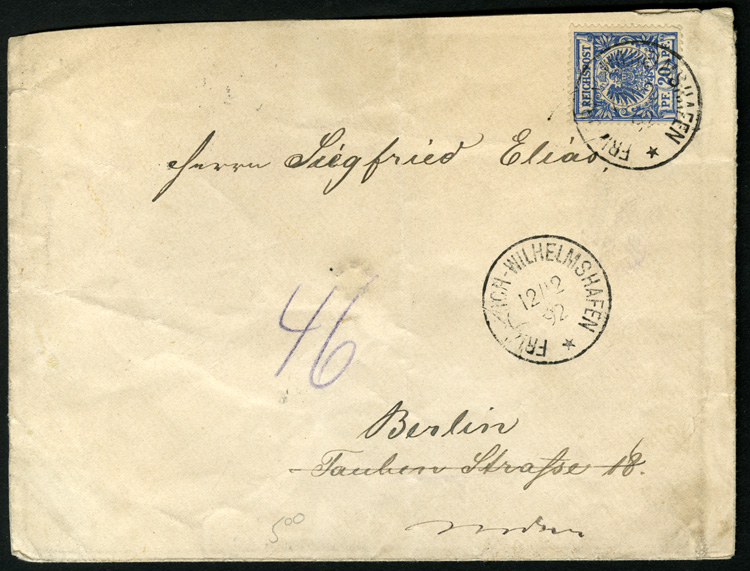 REICHSPOST 20 PF.
FRI HAFEN
Herrn Siegfried Elias,
FRIEDRICH-WILHELMSHAFEN
12/12
92
46
Berlin
Tauben Straße 18.
500